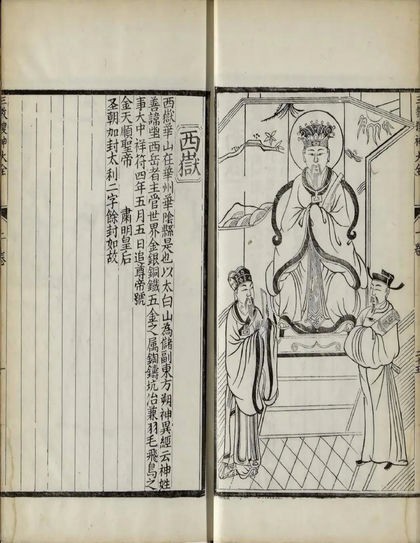 西嶽
西嶽華山在華州華陰縣是也以太白山為儲副東方朔神異經云神姓
善諱壟西岳者主管世界金銀銅鐵五金之属鎔鑄坑冶兼羽毛飛鳥之
事大中祥符四年五月五日追尊帝號
金天順聖帝 肅明皇后
聖朝加封大利二字餘封如故